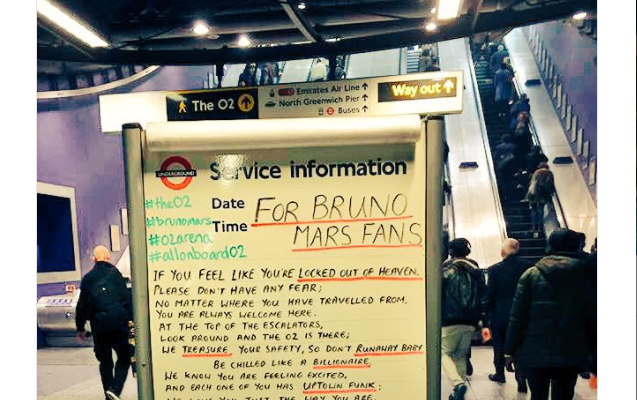 The O2
Emirates Air Line
North Greenwich Pier
Buses
Way out
UNDERGROUND
Service information
#theO2
#brunomars
#o2arena
#allonboardO2
Date
Time
FOR BRUNO
MARS FANS
IF YOU FEEL LIKE YOU'RE LOCKED OUT OF HEAVEN.
PLEASE DON'T HAVE ANY FEAR;
NO MATTER WHERE YOU HAVE TRAVELLED FROM.
YOU ARE ALWAYS WELCOME HERE.
AT THE TOP OF THE ESCALATORS,
LOOK AROUND AND THE O2 IS THERE;
WE TREASURE YOUR SAFETY, SO DON'T RUNAWAY BABY
BE CHILLED LIKE A BILLIONAIRE.
WE KNOW YOU ARE FEELING EXCITED,
AND EACH ONE OF YOU HAS UPTOWN FUNK;
WE LOVE YOU JUST THE WAY YOU ARE